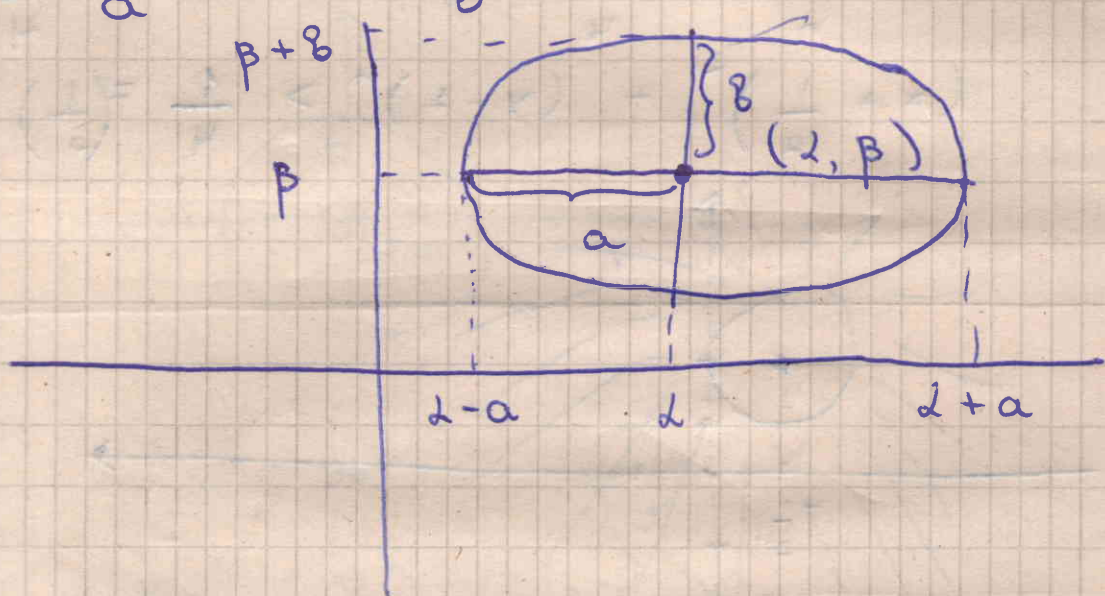 a
β + b
b
(α, β)
β
a
α - a
α
α + a